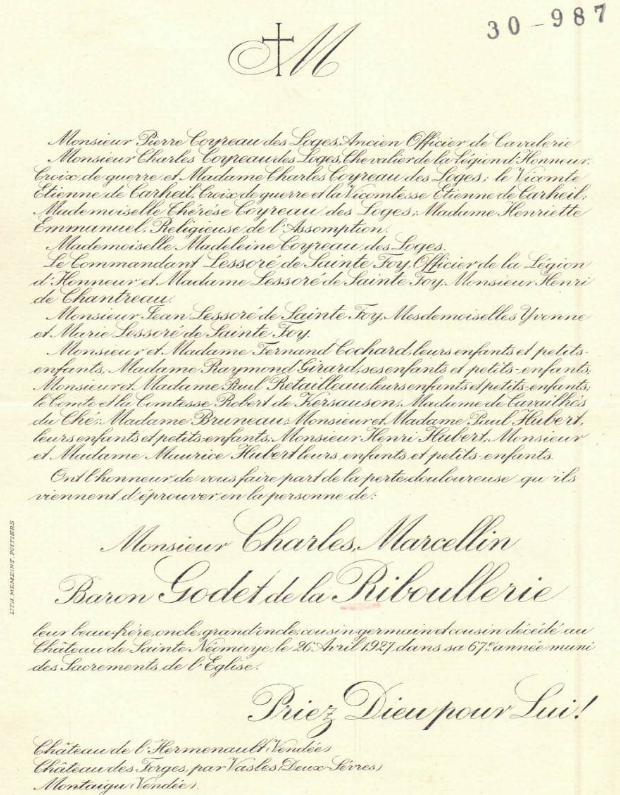 30-987
M
Monsieur Pierre Coyreau des Loges, Ancien Officier de Cavalerie
Monsieur Charles Coyreau des Loges, Chevalier de la Légion d'Honneur,
Croix de guerre et Madame Charles Coyreau des Loges; le Vicomte
Etienne de Carheil, Croix de guerre et la Vicomtesse Etienne de Carheil;
Mademoiselle Thérèse Coyreau des Loges; Madame Henriette
Emmanuel, Religieuse de l'Assomption.
Mademoiselle Madeleine Coyreau des Loges.
Le Commandant Lessoré de Sainte Foy, Officier de la Légion
d'Honneur et Madame Lessoré de Sainte Foy, Monsieur Henri
de Chantreau.
Monsieur Jean Lessoré de Sainte Foy, Mesdemoiselles Yvonne
et Marie Lessoré de Sainte Foy.
Monsieur et Madame Fernand Cochard, leurs enfants et petits-
enfants, Madame Raymond Girard, ses enfants et petits-enfants,
Monsieur et Madame Paul Retailleau, leurs enfants et petits-enfants;
le Comte et la Comtesse Robert de Kersauson; Madame de Cavailhès
du Ché; Madame Bruneau; Monsieur et Madame Paul Hubert,
leurs enfants et petits-enfants, Monsieur Henri Hubert, Monsieur
et Madame Maurice Hubert leurs enfants et petits-enfants.
Ont l'honneur de vous faire part de la perte douloureuse qu'ils
viennent d'éprouver en la personne de:
Monsieur Charles, Marcellin
Baron Godet de la Riboullerie
leur beau-frère, oncle, grand oncle, cousin germain et cousin décédé au
Château de Sainte Néomaye, le 26 Avril 1927, dans sa 67e année muni
des Sacrements de l'Eglise.
Priez Dieu pour Lui!
Château de l'Hermenault (Vendée)
Château des Forges, par Vasles (Deux-Sèvres)
Montaigu (Vendée).
LITH. MEMZINT. POITIERS